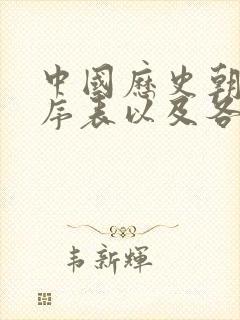 中國歷史朝
序表以及各
韦新輝